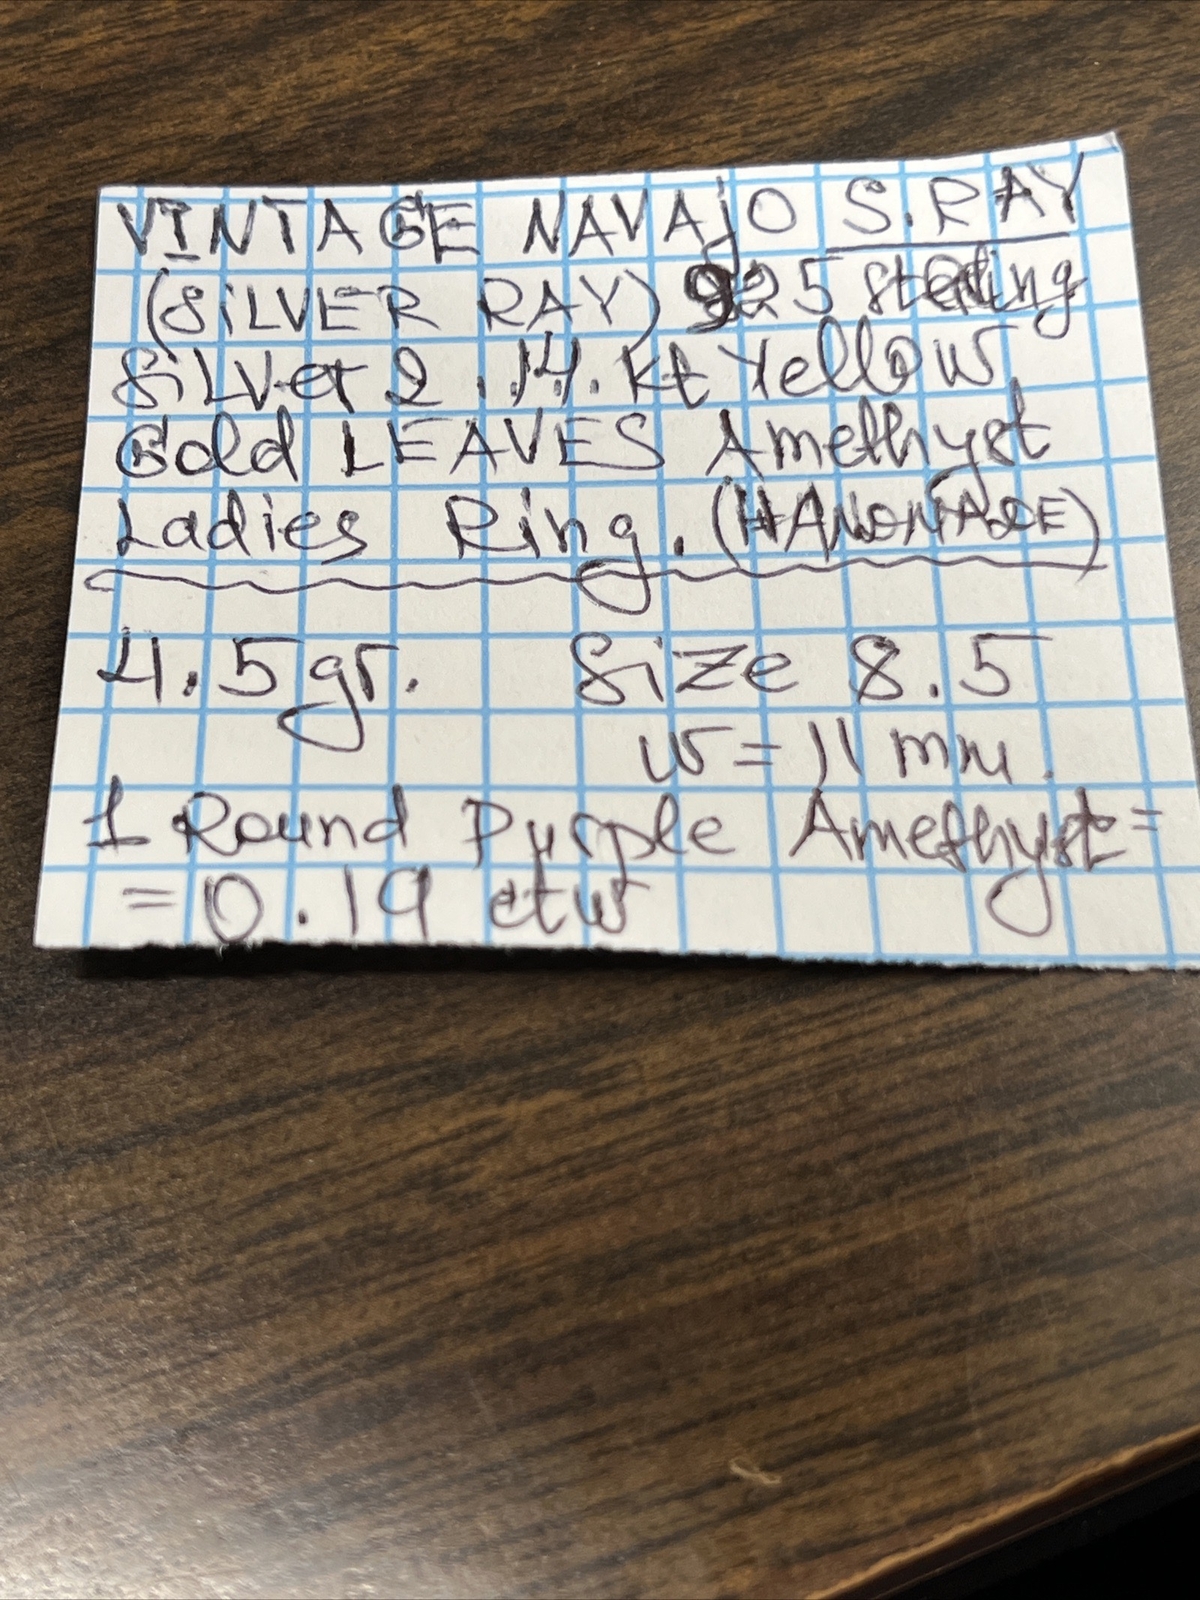 VINTAGE NAVAjO S.RAY
(SiLVER RAY) 925 sterling
SiLVer 2 .14. kt Yellow
Gold LEAVES Amethyst
Ladies Ring. (HANDMADE)
4.5 gr. Size 8.5
w = 11 mm.
1 Round Purple Amethyst =
= 0.19 ctw